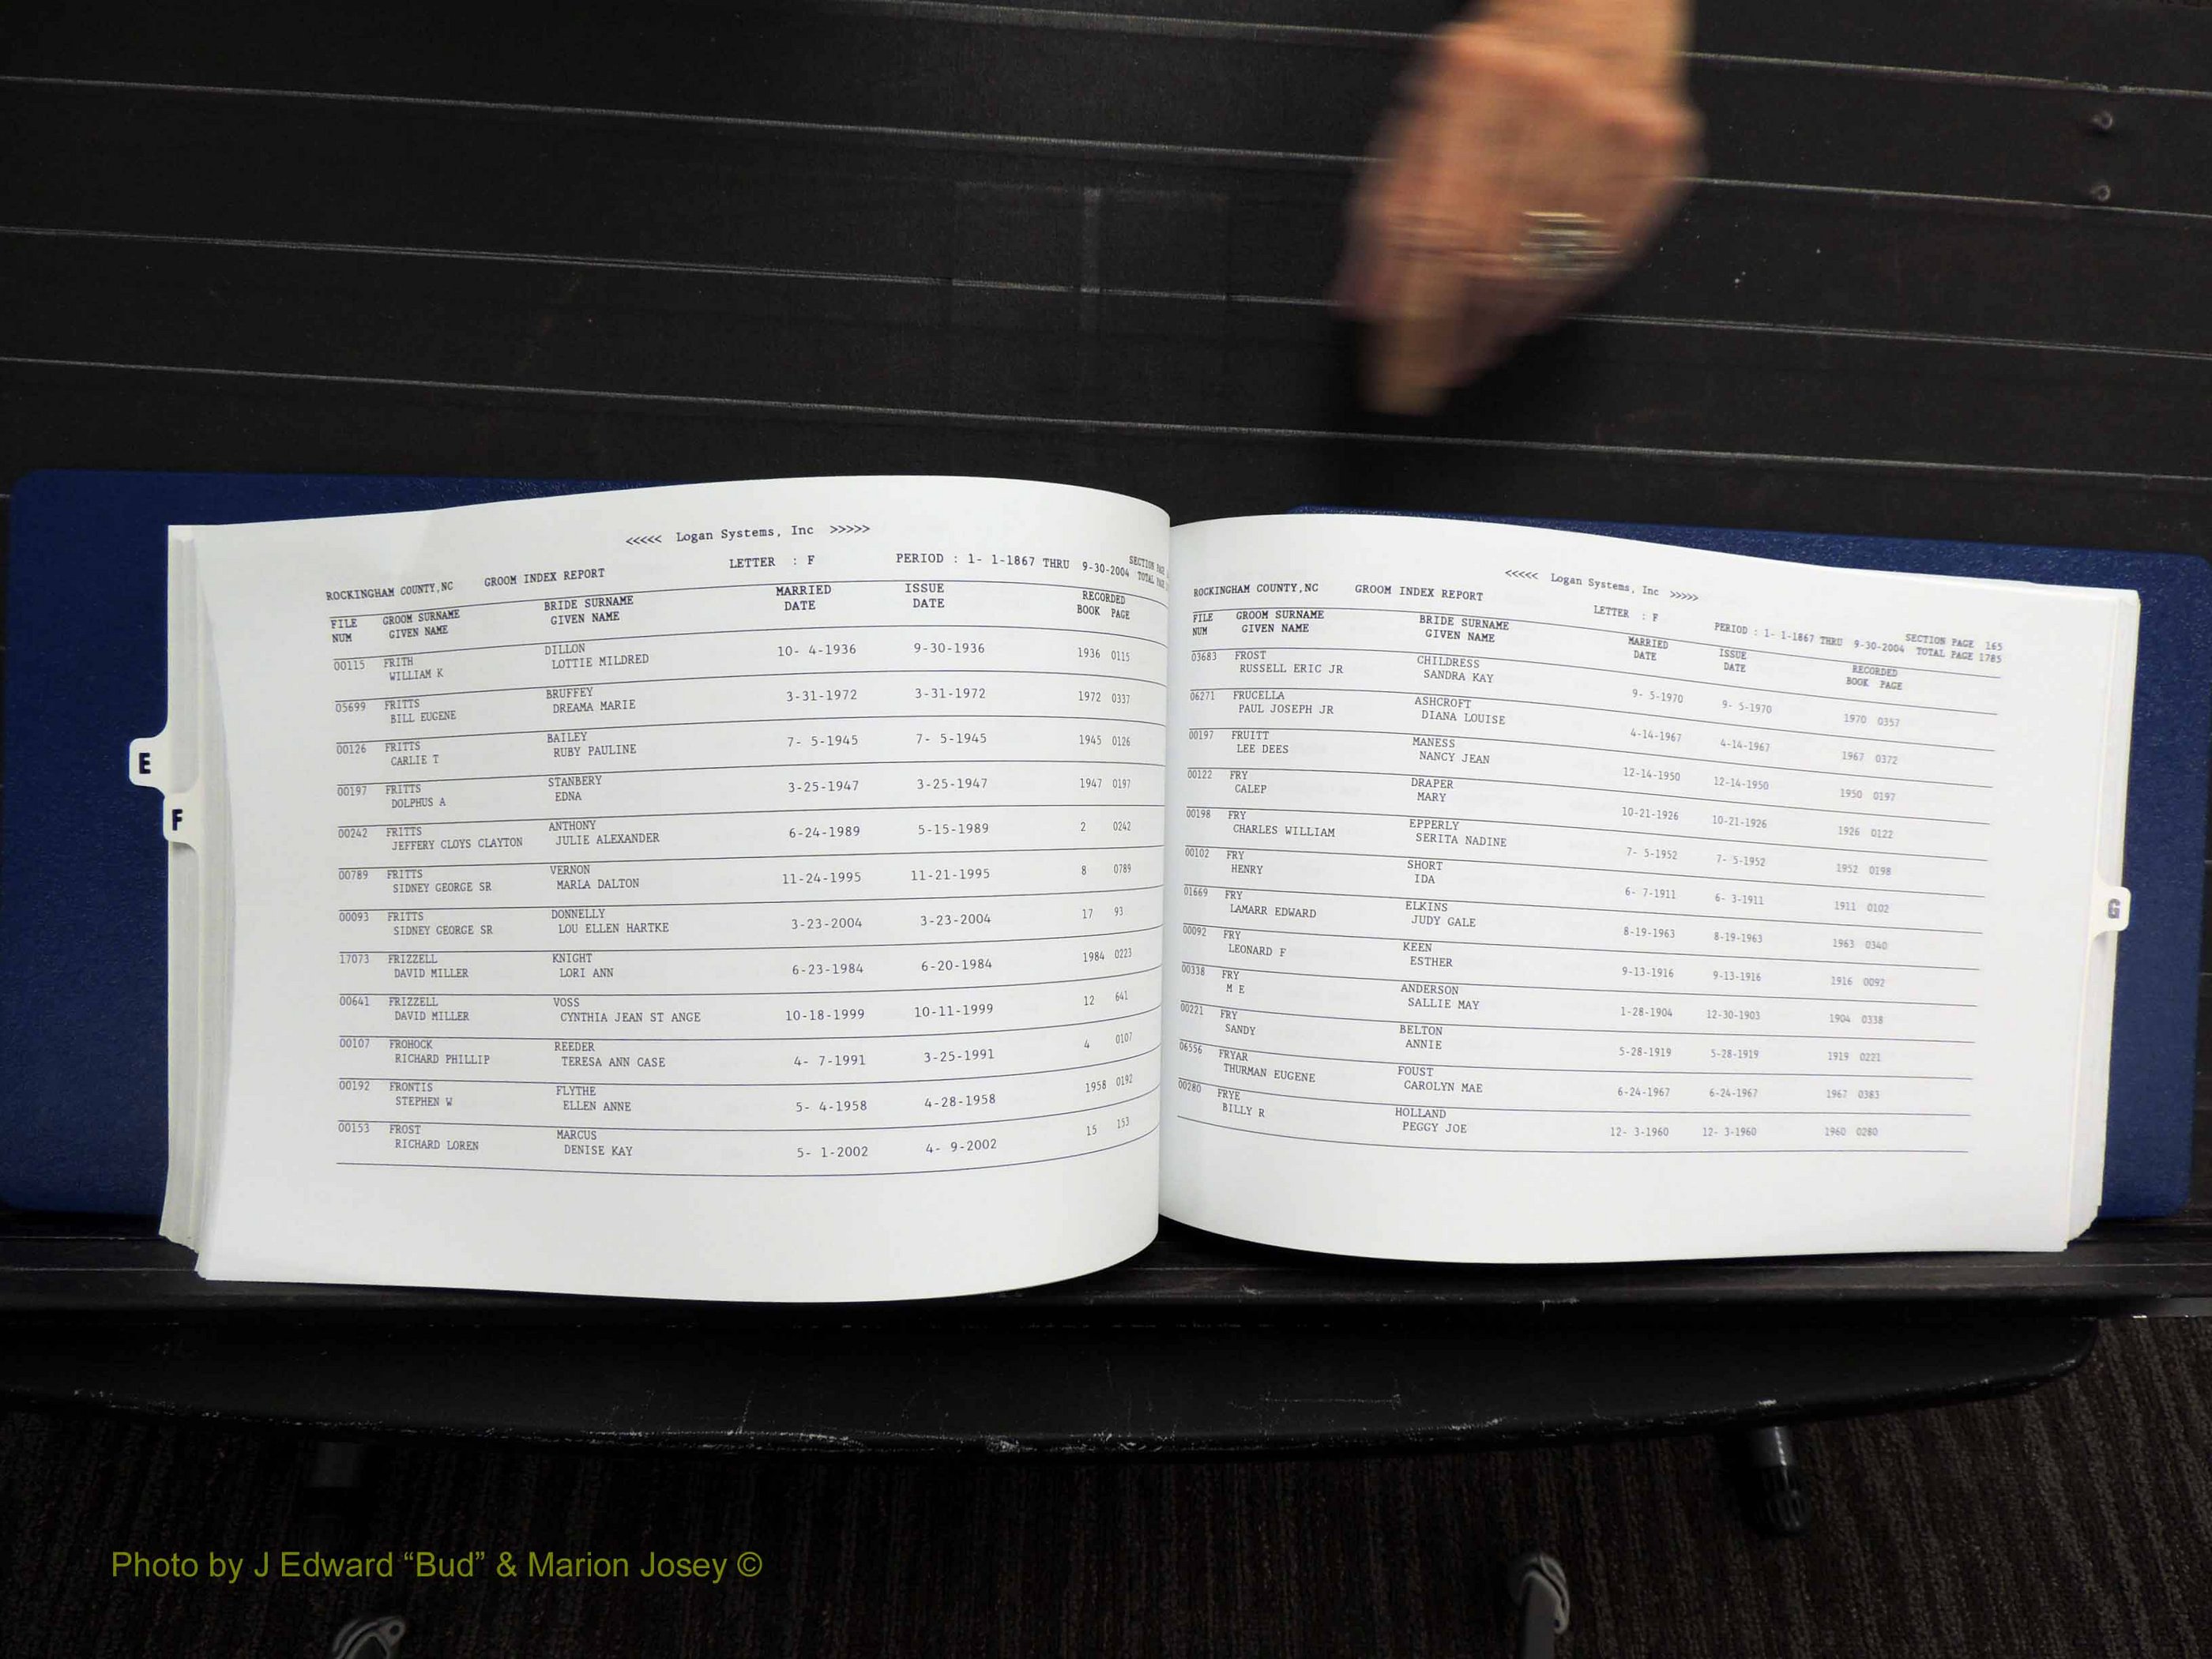 <<<<< Logan Systems, Inc >>>>>
ROCKINGHAM COUNTY,NC GROOM INDEX REPORT LETTER : F PERIOD : 1- 1-1867 THRU 9-30-2004 SECTION PAGE
TOTAL PAGE
FILE GROOM SURNAME BRIDE SURNAME MARRIED ISSUE RECORDED
NUM GIVEN NAME GIVEN NAME DATE DATE BOOK PAGE
00115 FRITH DILLON 10- 4-1936 9-30-1936 1936 0115
WILLIAM K LOTTIE MILDRED
05699 FRITTS BRUFFEY 3-31-1972 3-31-1972 1972 0337
BILL EUGENE DREAMA MARIE
00126 FRITTS BAILEY 7- 5-1945 7- 5-1945 1945 0126
CARLIE T RUBY PAULINE
00197 FRITTS STANBERY 3-25-1947 3-25-1947 1947 0197
DOLPHUS A EDNA
00242 FRITTS ANTHONY 6-24-1989 5-15-1989 2 0242
JEFFERY CLOYS CLAYTON JULIE ALEXANDER
00789 FRITTS VERNON 11-24-1995 11-21-1995 8 0789
SIDNEY GEORGE SR MARLA DALTON
00093 FRITTS DONNELLY 3-23-2004 3-23-2004 17 93
SIDNEY GEORGE SR LOU ELLEN HARTKE
17073 FRIZZELL KNIGHT 6-23-1984 6-20-1984 1984 0223
DAVID MILLER LORI ANN
00641 FRIZZELL VOSS 10-18-1999 10-11-1999 12 641
DAVID MILLER CYNTHIA JEAN ST ANGE
00107 FROHOCK REEDER 4- 7-1991 3-25-1991 4 0107
RICHARD PHILLIP TERESA ANN CASE
00192 FRONTIS FLYTHE 5- 4-1958 4-28-1958 1958 0192
STEPHEN W ELLEN ANNE
00153 FROST MARCUS 5- 1-2002 4- 9-2002 15 153
RICHARD LOREN DENISE KAY
E
F
<<<<< Logan Systems, Inc >>>>>
ROCKINGHAM COUNTY,NC GROOM INDEX REPORT LETTER : F PERIOD : 1- 1-1867 THRU 9-30-2004 SECTION PAGE 165
TOTAL PAGE 1785
FILE GROOM SURNAME BRIDE SURNAME MARRIED ISSUE RECORDED
NUM GIVEN NAME GIVEN NAME DATE DATE BOOK PAGE
03683 FROST CHILDRESS 9- 5-1970 9- 5-1970 1970 0357
RUSSELL ERIC JR SANDRA KAY
06271 FRUCELLA ASHCROFT 4-14-1967 4-14-1967 1967 0372
PAUL JOSEPH JR DIANA LOUISE
00197 FRUITT MANESS 12-14-1950 12-14-1950 1950 0197
LEE DEES NANCY JEAN
00122 FRY DRAPER 10-21-1926 10-21-1926 1926 0122
CALEP MARY
00198 FRY EPPERLY 7- 5-1952 7- 5-1952 1952 0198
CHARLES WILLIAM SERITA NADINE
00102 FRY SHORT 6- 7-1911 6- 3-1911 1911 0102
HENRY IDA
01669 FRY ELKINS 8-19-1963 8-19-1963 1963 0340
LAMARR EDWARD JUDY GALE
00092 FRY KEEN 9-13-1916 9-13-1916 1916 0092
LEONARD F ESTHER
00338 FRY ANDERSON 1-28-1904 12-30-1903 1904 0338
M E SALLIE MAY
00221 FRY BELTON 5-28-1919 5-28-1919 1919 0221
SANDY ANNIE
06556 FRYAR FOUST 6-24-1967 6-24-1967 1967 0383
THURMAN EUGENE CAROLYN MAE
00280 FRYE HOLLAND 12- 3-1960 12- 3-1960 1960 0280
BILLY R PEGGY JOE
G
Photo by J Edward “Bud” & Marion Josey ©